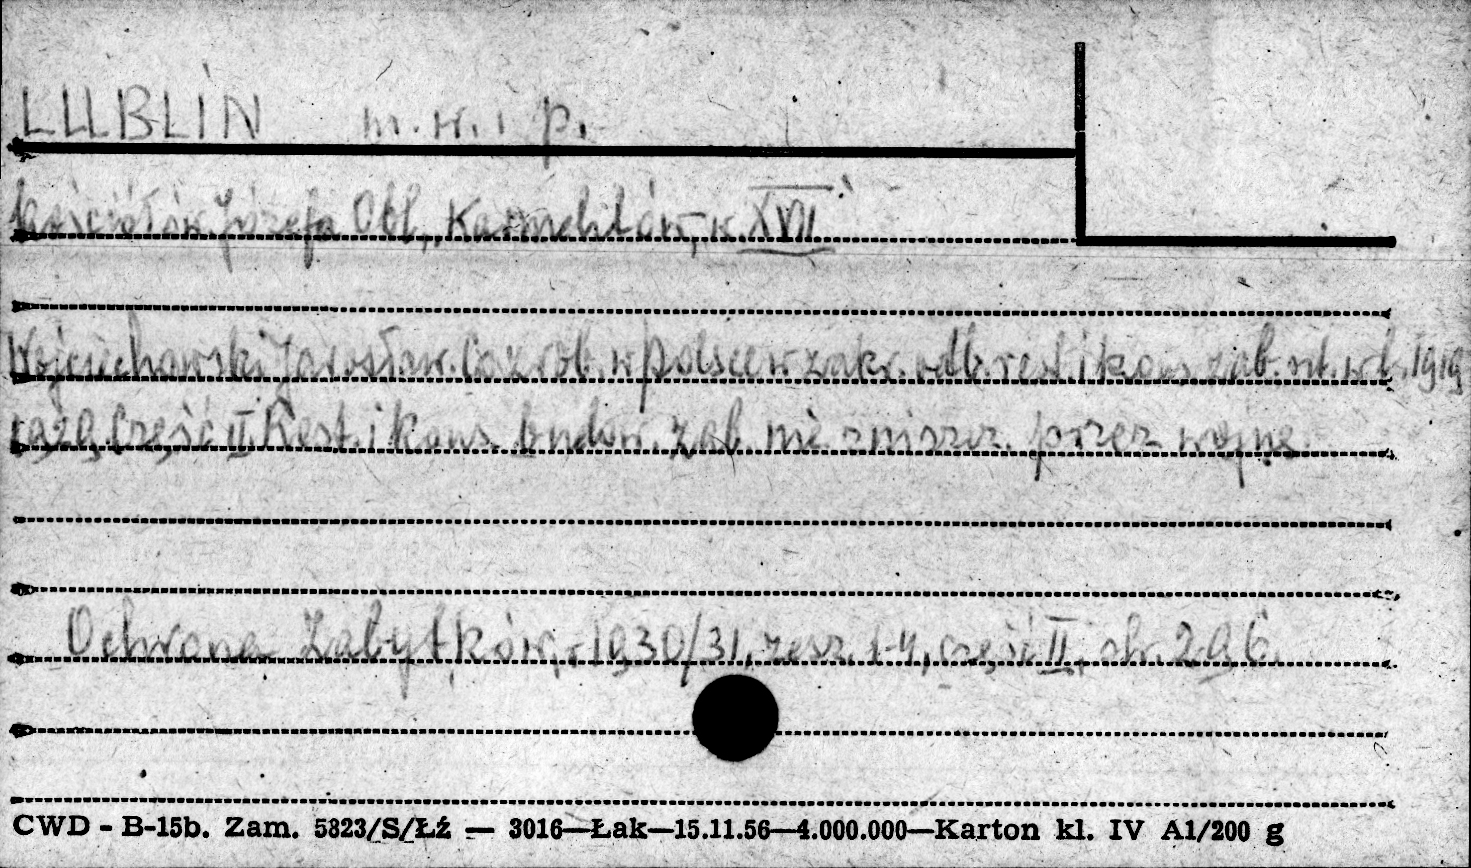 LUBLIN m. w. i p.
kościół św. Józefa Obl., Karmelitów, w. XVII
Wojciechowski Jarosław. Co zrob. w Polsce w zakr. odb. rest. i kons. zab. szt. w l. 1919
1929 Część II Rest. i kons. budow. zab. nie zniszcz. przez wojnę
Ochrona Zabytków, 1930/31, zesz. 1-4, część II, str. 296.
CWD - B-15b. Zam. 5823/S/Łź — 3016—Łak—15.11.56—4.000.000—Karton kl. IV A1/200 g